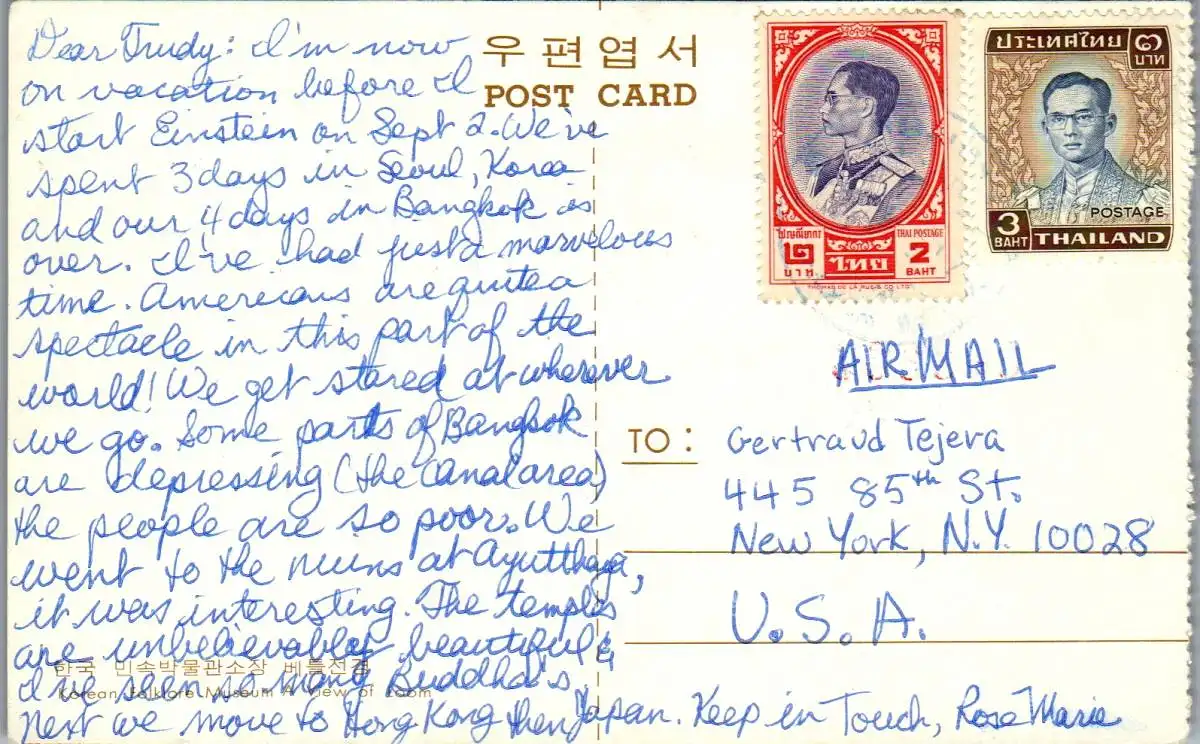 Dear Trudy: I'm now
on vacation before I
start Einstein on Sept 2. We've
spent 3 days in Seoul, Korea
and our 4 days in Bangkok is
over. I've had just a marvelous
time. Americans are quite a
spectacle in this part of the
world! We get stared at wherever
we go. Some parts of Bangkok
are depressing (the canal area)
the people are so poor. We
went to the ruins at Ayutthaya,
it was interesting. The temples
are unbelievably beautiful &
I've seen so many Buddha's.
Next we move to Hong Kong then Japan. Keep in Touch, Rose Marie
우편엽서
POST CARD
ไปรษณียากร
THAI POSTAGE
๒
บาท
ไทย
2
BAHT
THOMAS DE LA RUE & CO LTD
ประเทศไทย
๓
บาท
POSTAGE
3
BAHT
THAILAND
AIR MAIL
TO:
Gertraud Tejera
445 85th St.
New York, N.Y. 10028
U.S.A.
한국 민속박물관소장 베틀전경
Korean Folklore Museum A view of Loom